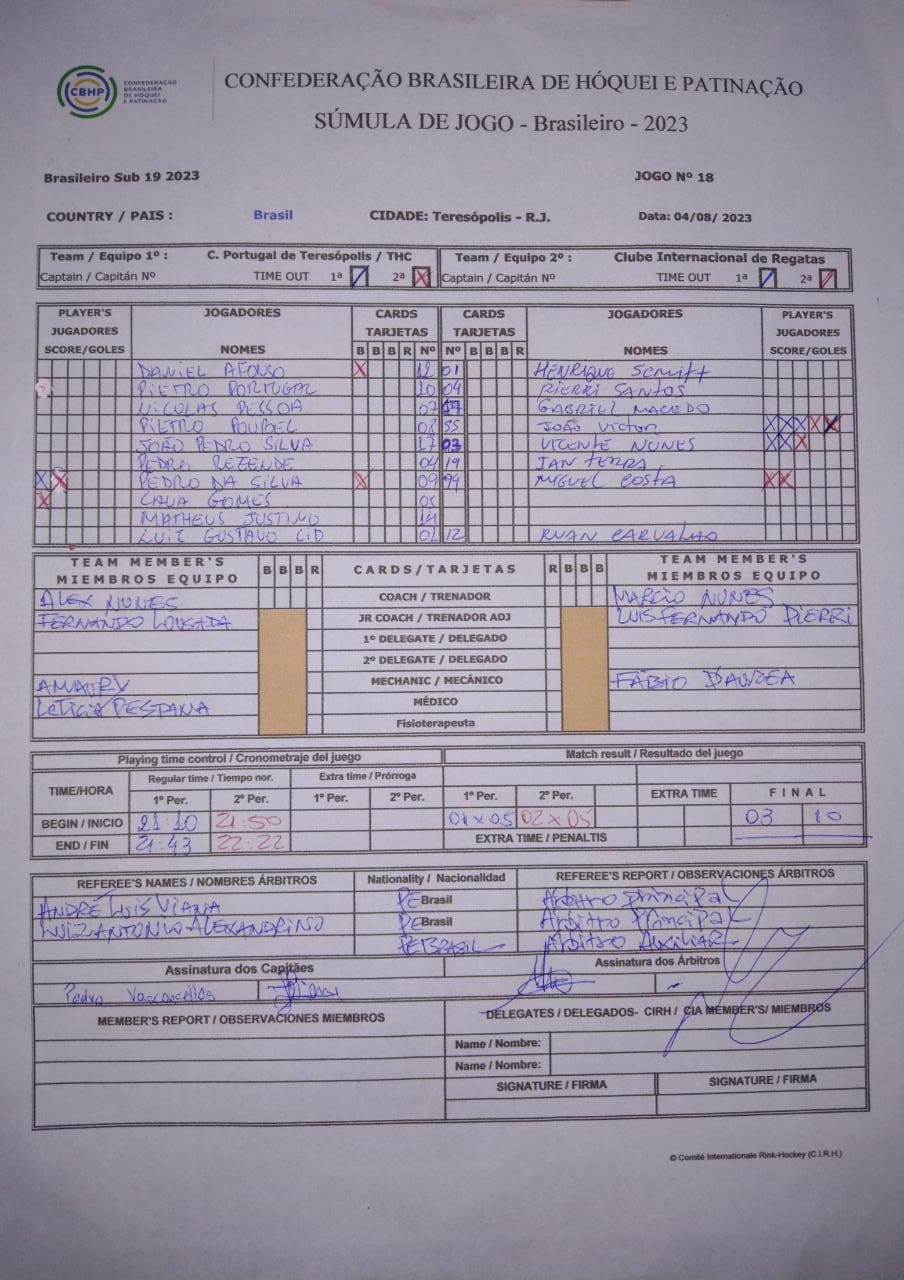 CBHP CONFEDERAÇÃO
BRASILEIRA
DE HÓQUEI
E PATINAÇÃO
CONFEDERAÇÃO BRASILEIRA DE HÓQUEI E PATINAÇÃO
SÚMULA DE JOGO - Brasileiro - 2023
Brasileiro Sub 19 2023 JOGO Nº 18
COUNTRY / PAIS : Brasil CIDADE: Teresópolis - R.J. Data: 04/08/ 2023
Team / Equipo 1º : C. Portugal de Teresópolis / THC Team / Equipo 2º : Clube Internacional de Regatas
Captain / Capitán Nº TIME OUT 1ª 2ª X Captain / Capitán Nº TIME OUT 1ª 2ª
PLAYER'S JOGADORES CARDS CARDS JOGADORES PLAYER'S
JUGADORES TARJETAS TARJETAS JUGADORES
SCORE/GOLES NOMES B B B R Nº Nº B B B R NOMES SCORE/GOLES
DANIEL AFONSO X 12 01 HENRIQUE SCMITT
PIETRO PORTUGAL 10 04 PIERRI SANTOS
NICOLAS PESSOA 07 GABRIEL MACEDO
PIETRO POUBEL 08 55 JOÃO VICTOR X X X X X
JOÃO PEDRO SILVA 17 03 VICENTE NUNES X X X
PEDRO REZENDE 04 19 JAN TERRA
X X PEDRO DA SILVA X 09 99 MIGUEL COSTA X X
X CAUA GOMES 05
MATHEUS JUSTINO 14
LUIZ GUSTAVO CID 01 12 RUAN CARVALHO
TEAM MEMBER'S B B B R CARDS/TARJETAS R B B B TEAM MEMBER'S
MIEMBROS EQUIPO MIEMBROS EQUIPO
ALEX NUNES COACH / TRENADOR MARCIO NUNES
FERNANDO LOUSADA JR COACH / TRENADOR ADJ LUIS FERNANDO PIERRI
1º DELEGATE / DELEGADO
2º DELEGATE / DELEGADO
AMAURY MECHANIC / MECÁNICO FÁBIO D'AUREA
LETICIA PESTANA MÉDICO
Fisioterapeuta
Playing time control / Cronometraje del juego Match result / Resultado del juego
TIME/HORA Regular time / Tiempo nor. Extra time / Prórroga
1º Per. 2º Per. 1º Per. 2º Per. 1º Per. 2º Per. EXTRA TIME FINAL
BEGIN / INICIO 21:10 21:50 01 x 05 02 x 05 03 10
END / FIN 21:43 22:22 EXTRA TIME / PENALTIS
REFEREE'S NAMES / NOMBRES ÁRBITROS Nationality / Nacionalidad REFEREE'S REPORT / OBSERVACIONES ÁRBITROS
ANDRÉ LUIS VIANA PE Brasil Arbitro Principal
LUIZ ANTONIO ALEXANDRINO PE Brasil Arbitro Principal
PE BRASIL Arbitro Auxiliar
Assinatura dos Capitães Assinatura dos Árbitros
Pedro Vasconcellos
MEMBER'S REPORT / OBSERVACIONES MIEMBROS DELEGATES / DELEGADOS- CIRH / CIA MEMBER'S/ MIEMBROS
Name / Nombre:
Name / Nombre:
SIGNATURE / FIRMA SIGNATURE / FIRMA
© Comité Internationale Rink-Hockey (C.I.R.H.)